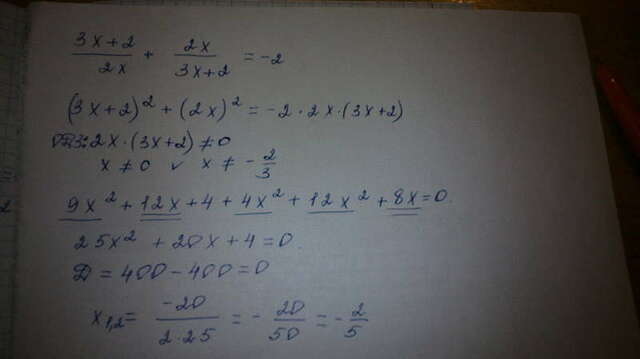 (3x+2)/(2x) + (2x)/(3x+2) = -2
(3x+2)² + (2x)² = -2·2x·(3x+2)
ОДЗ: 2x·(3x+2) ≠ 0
x ≠ 0 v x ≠ -2/3
9x² + 12x + 4 + 4x² + 12x² + 8x = 0.
25x² + 20x + 4 = 0.
D = 400 - 400 = 0
x₁,₂ = (-20)/(2·25) = -20/50 = -2/5